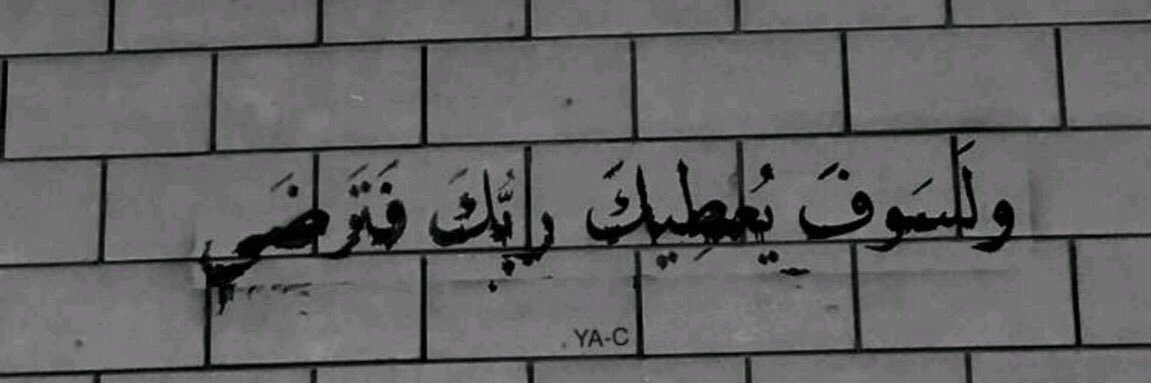 وَلَسَوفَ يُعطِيكَ رَبُّكَ فَتَرضَى
YA-C